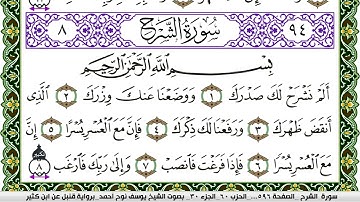 ٩٤ سُورَةُ الشَّرْحِ ٨
بِسْمِ اللَّهِ الرَّحْمَٰنِ الرَّحِيمِ
أَلَمْ نَشْرَحْ لَكَ صَدْرَكَ ١ وَوَضَعْنَا عَنكَ وِزْرَكَ ٢ الَّذِي
أَنقَضَ ظَهْرَكَ ٣ وَرَفَعْنَا لَكَ ذِكْرَكَ ٤ فَإِنَّ مَعَ الْعُسْرِ يُسْرًا ٥ إِنَّ
مَعَ الْعُسْرِ يُسْرًا ٦ فَإِذَا فَرَغْتَ فَانصَبْ ٧ وَإِلَىٰ رَبِّكَ فَارْغَب ٨
سورة الشرح _الصفحة ٥٩٦_ الحزب ٦٠_ الجزء ٣٠_ بصوت الشيخ يوسف نوح أحمد_برواية قنبل عن ابن كثير